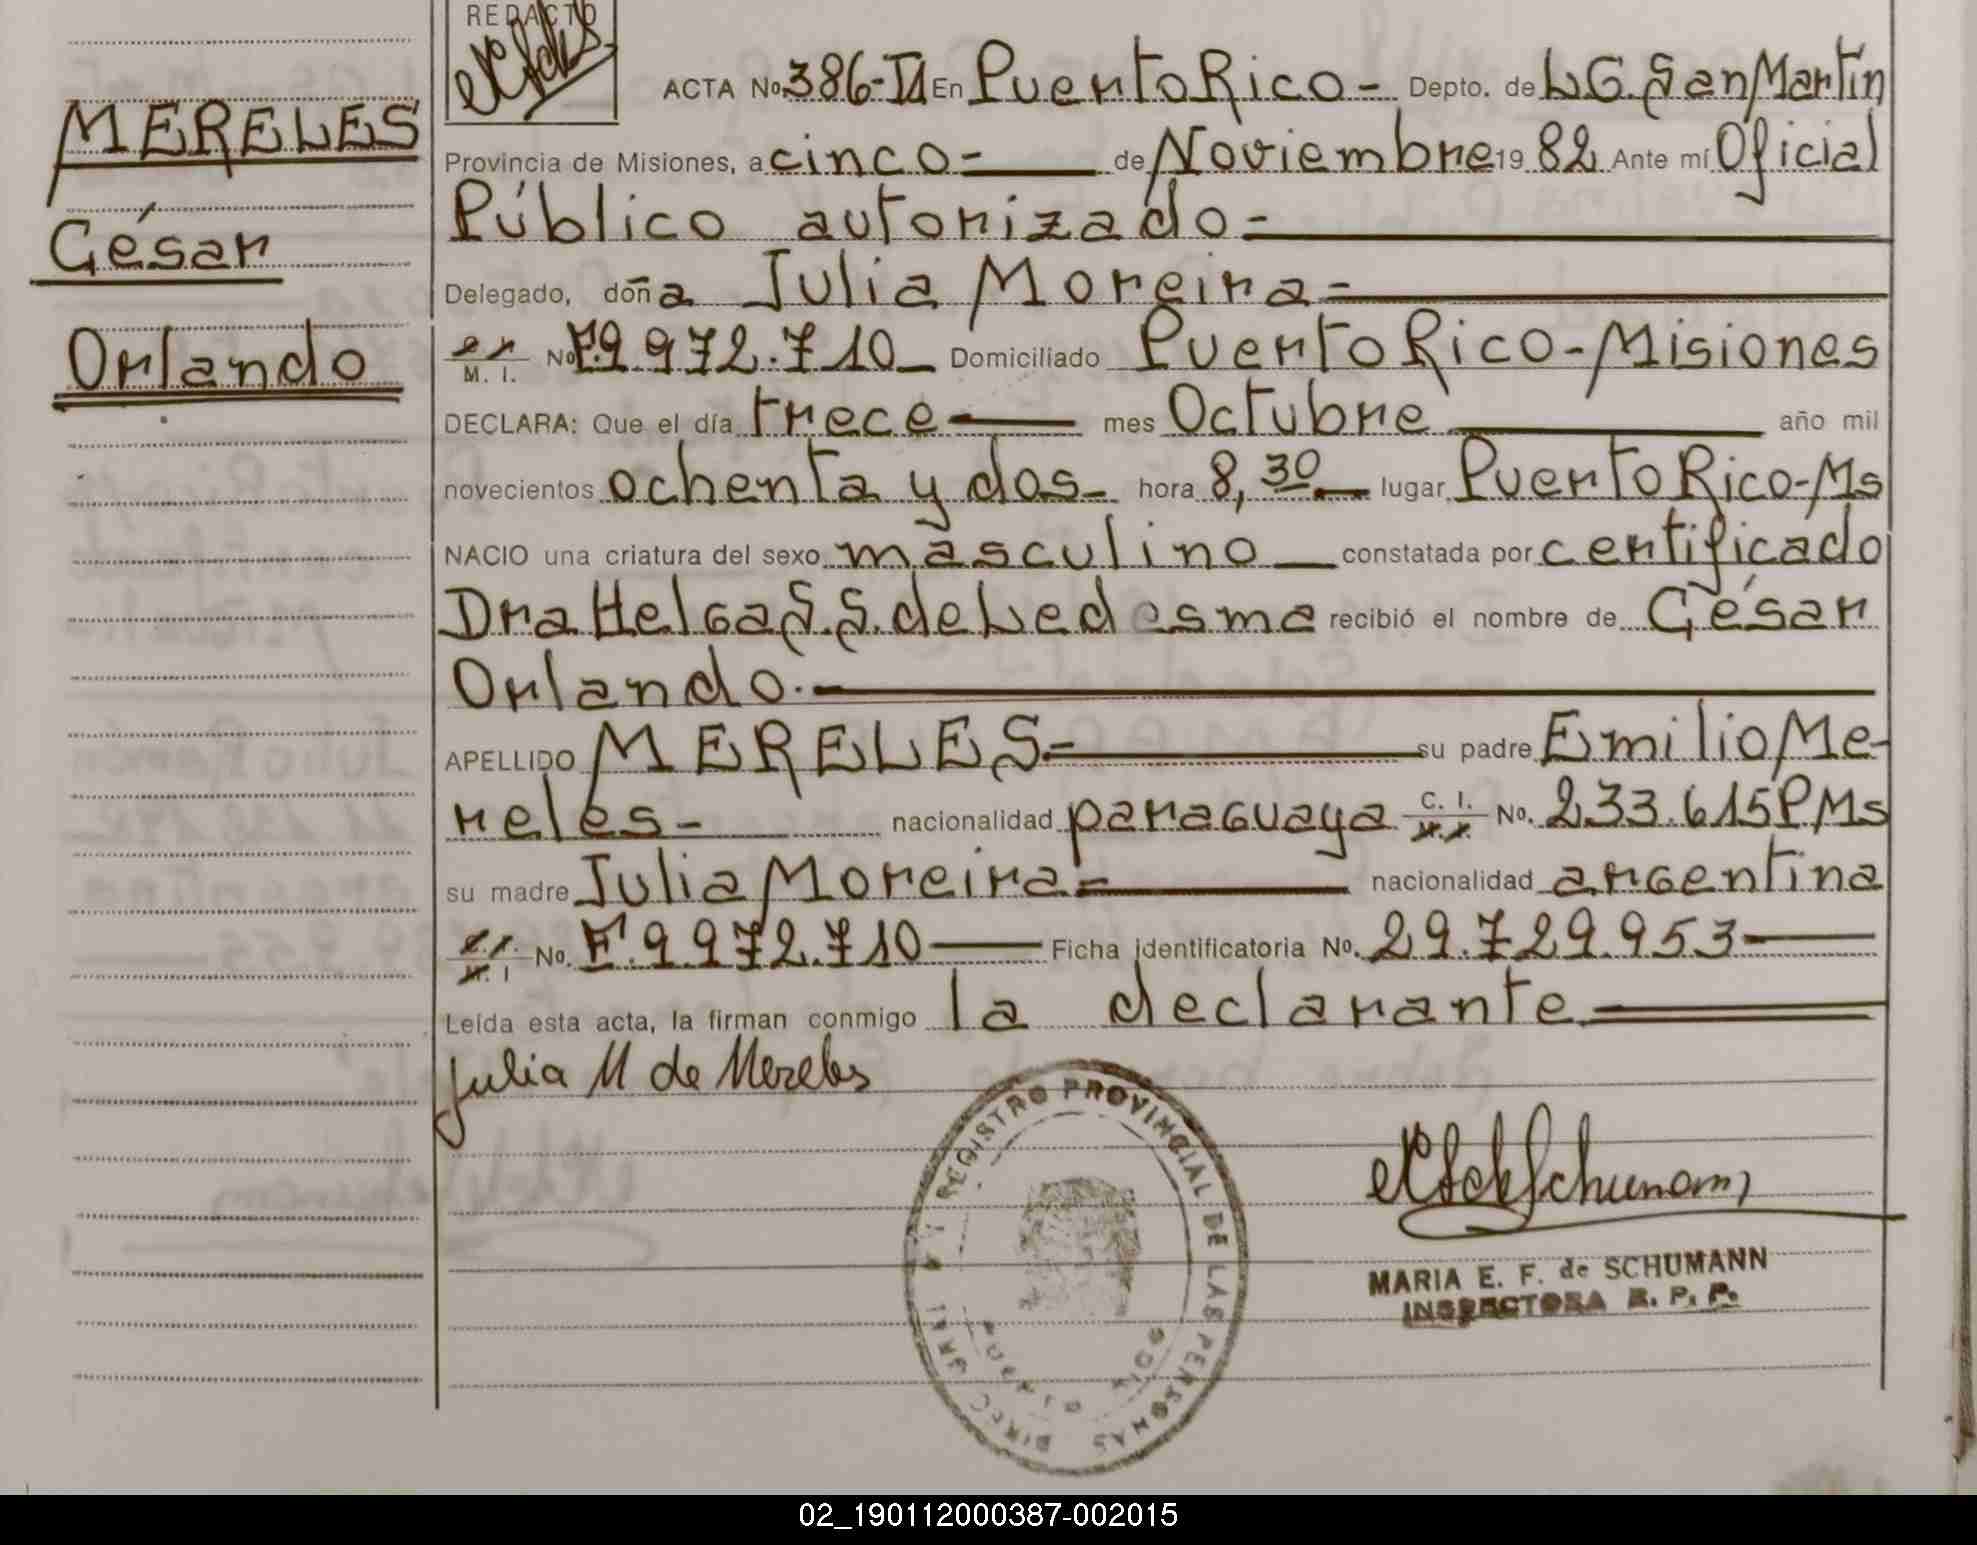 REDACTO
MERELES
César
Orlando
ACTA No. 386-TI En Puerto Rico - Depto. de L G. San Martín
Provincia de Misiones, a cinco - de Noviembre 19 82 Ante mí Oficial
Público autorizado -
Delegado, doña Julia Moreira -
M. I. No F. 9.972.710 Domiciliado Puerto Rico - Misiones
DECLARA: Que el día trece mes Octubre año mil
novecientos ochenta y dos - hora 8,30 lugar Puerto Rico - Ms
NACIO una criatura del sexo masculino constatada por certificado
Dra Helga S. S. de Ledesma recibió el nombre de César
Orlando. -
APELLIDO MERELES - su padre Emilio Me-
reles - nacionalidad paraguaya C. I. No. 233.615 P Ms
su madre Julia Moreira - nacionalidad argentina
No. F. 9.972.710 Ficha identificatoria No. 29.729.953
Leída esta acta, la firman conmigo la declarante
Julia M de Mereles
REGISTRO PROVINCIAL DE LAS PERSONAS
PUERTO RICO
MARIA E. F. de SCHUMANN
INSPECTORA R. P. P.
02_190112000387-002015